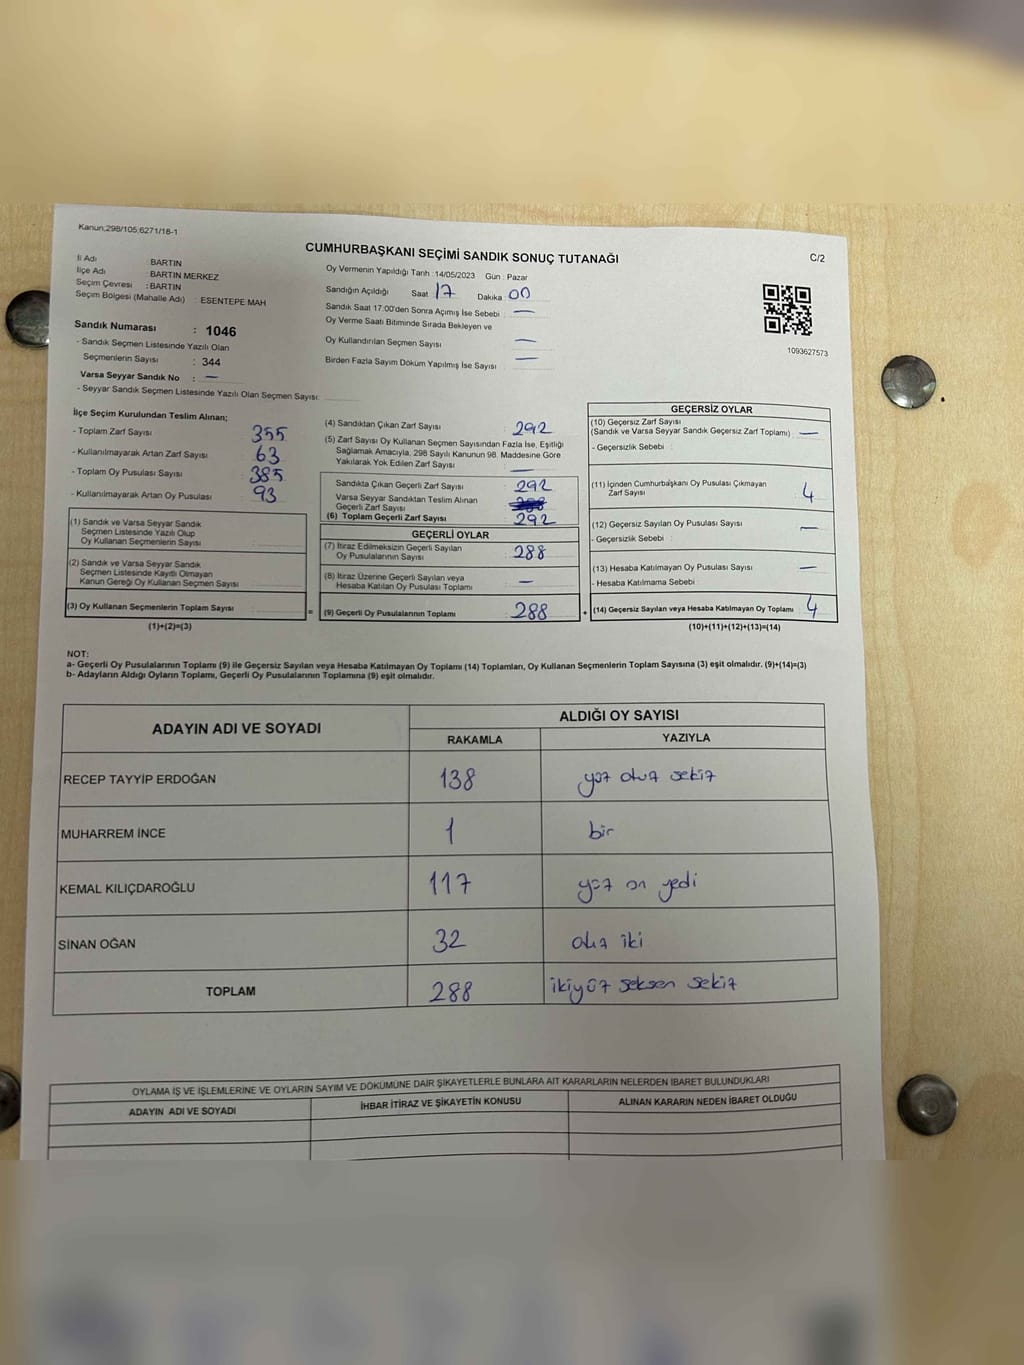 Kanun,298/105;6271/18-1
CUMHURBAŞKANI SEÇİMİ SANDIK SONUÇ TUTANAĞI
C/2
İli Adı : BARTIN
İlçe Adı : BARTIN MERKEZ
Seçim Çevresi : BARTIN
Seçim Bölgesi (Mahalle Adı) : ESENTEPE MAH
Oy Vermenin Yapıldığı Tarih :14/05/2023 Gün : Pazar
Sandığın Açıldığı Saat 17 Dakika 00
Sandık Saat 17:00'den Sonra Açımış İse Sebebi : —
Oy Verme Saati Bitiminde Sırada Bekleyen ve
Oy Kullandırılan Seçmen Sayısı : —
Birden Fazla Sayım Döküm Yapılmış İse Sayısı : —
1093627573
Sandık Numarası : 1046
- Sandık Seçmen Listesinde Yazılı Olan
Seçmenlerin Sayısı : 344
Varsa Seyyar Sandık No : —
- Seyyar Sandık Seçmen Listesinde Yazılı Olan Seçmen Sayısı:
İlçe Seçim Kurulundan Teslim Alınan;
- Toplam Zarf Sayısı : 355
- Kullanılmayarak Artan Zarf Sayısı : 63
- Toplam Oy Pusulası Sayısı : 385
- Kullanılmayarak Artan Oy Pusulası : 93
(1) Sandık ve Varsa Seyyar Sandık
Seçmen Listesinde Yazılı Olup
Oy Kullanan Seçmenlerin Sayısı :
(2) Sandık ve Varsa Seyyar Sandık
Seçmen Listesinde Kayıtlı Olmayan
Kanun Gereği Oy Kullanan Seçmen Sayısı :
(3) Oy Kullanan Seçmenlerin Toplam Sayısı :
(1)+(2)=(3)
(4) Sandıktan Çıkan Zarf Sayısı : 292
(5) Zarf Sayısı Oy Kullanan Seçmen Sayısından Fazla İse, Eşitliği
Sağlamak Amacıyla, 298 Sayılı Kanunun 98. Maddesine Göre
Yakılarak Yok Edilen Zarf Sayısı : —
Sandıkta Çıkan Geçerli Zarf Sayısı : 292
Varsa Seyyar Sandıktan Teslim Alınan
Geçerli Zarf Sayısı :
(6) Toplam Geçerli Zarf Sayısı : 292
GEÇERLİ OYLAR
(7) İtiraz Edilmeksizin Geçerli Sayılan
Oy Pusulalarının Sayısı : 288
(8) İtiraz Üzerine Geçerli Sayılan veya
Hesaba Katılan Oy Pusulası Toplamı : —
= (9) Geçerli Oy Pusulalarının Toplamı : 288 +
GEÇERSİZ OYLAR
(10) Geçersiz Zarf Sayısı
(Sandık ve Varsa Seyyar Sandık Geçersiz Zarf Toplamı) : —
- Geçersizlik Sebebi :
(11) İçinden Cumhurbaşkanı Oy Pusulası Çıkmayan
Zarf Sayısı : 4
(12) Geçersiz Sayılan Oy Pusulası Sayısı : —
- Geçersizlik Sebebi :
(13) Hesaba Katılmayan Oy Pusulası Sayısı : —
- Hesaba Katılmama Sebebi :
(14) Geçersiz Sayılan veya Hesaba Katılmayan Oy Toplamı : 4
(10)+(11)+(12)+(13)=(14)
NOT:
a- Geçerli Oy Pusulalarının Toplamı (9) ile Geçersiz Sayılan veya Hesaba Katılmayan Oy Toplamı (14) Toplamları, Oy Kullanan Seçmenlerin Toplam Sayısına (3) eşit olmalıdır. (9)+(14)=(3)
b- Adayların Aldığı Oyların Toplamı, Geçerli Oy Pusulalarının Toplamına (9) eşit olmalıdır.
ADAYIN ADI VE SOYADI ALDIĞI OY SAYISI
RAKAMLA YAZIYLA
RECEP TAYYİP ERDOĞAN 138 yüz otuz sekiz
MUHARREM İNCE 1 bir
KEMAL KILIÇDAROĞLU 117 yüz on yedi
SİNAN OĞAN 32 otuz iki
TOPLAM 288 ikiyüz seksen sekiz
OYLAMA İŞ VE İŞLEMLERİNE VE OYLARIN SAYIM VE DÖKÜMÜNE DAİR ŞİKAYETLERLE BUNLARA AİT KARARLARIN NELERDEN İBARET BULUNDUKLARI
ADAYIN ADI VE SOYADI İHBAR İTİRAZ VE ŞİKAYETİN KONUSU ALINAN KARARIN NEDEN İBARET OLDUĞU